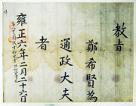 教旨
鄭希賢爲
通政大夫
者
雍正六年二月二十六日